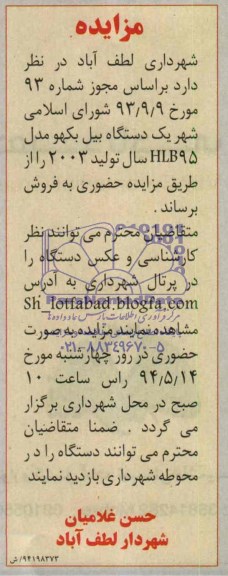 مزایده
شهرداری لطف آباد در نظر
دارد براساس مجوز شماره ۹۳
مورخ ۹۳/۹/۹ شورای اسلامی
شهر یک دستگاه بیل بکهو مدل
HLB۹۵ سال تولید ۲۰۰۳ را از
طریق مزایده حضوری به فروش
برساند .
متقاضیان محترم می توانند نظر
کارشناسی و عکس دستگاه را
در پرتال شهرداری به آدرس
Sh_lotfabad.blogfa.com
مشاهده نمایند مزایده به صورت
۰۲۱-۸۸۳۴۹۶۷۰-۵
حضوری در روز چهارشنبه مورخ
۹۴/۵/۱۴ راس ساعت ۱۰
صبح در محل شهرداری برگزار
می گردد . ضمنا متقاضیان
محترم می توانند دستگاه را در
محوطه شهرداری بازدید نمایند
حسن غلامیان
شهردار لطف آباد
۹۴۱۹۸۳۷۳/ش